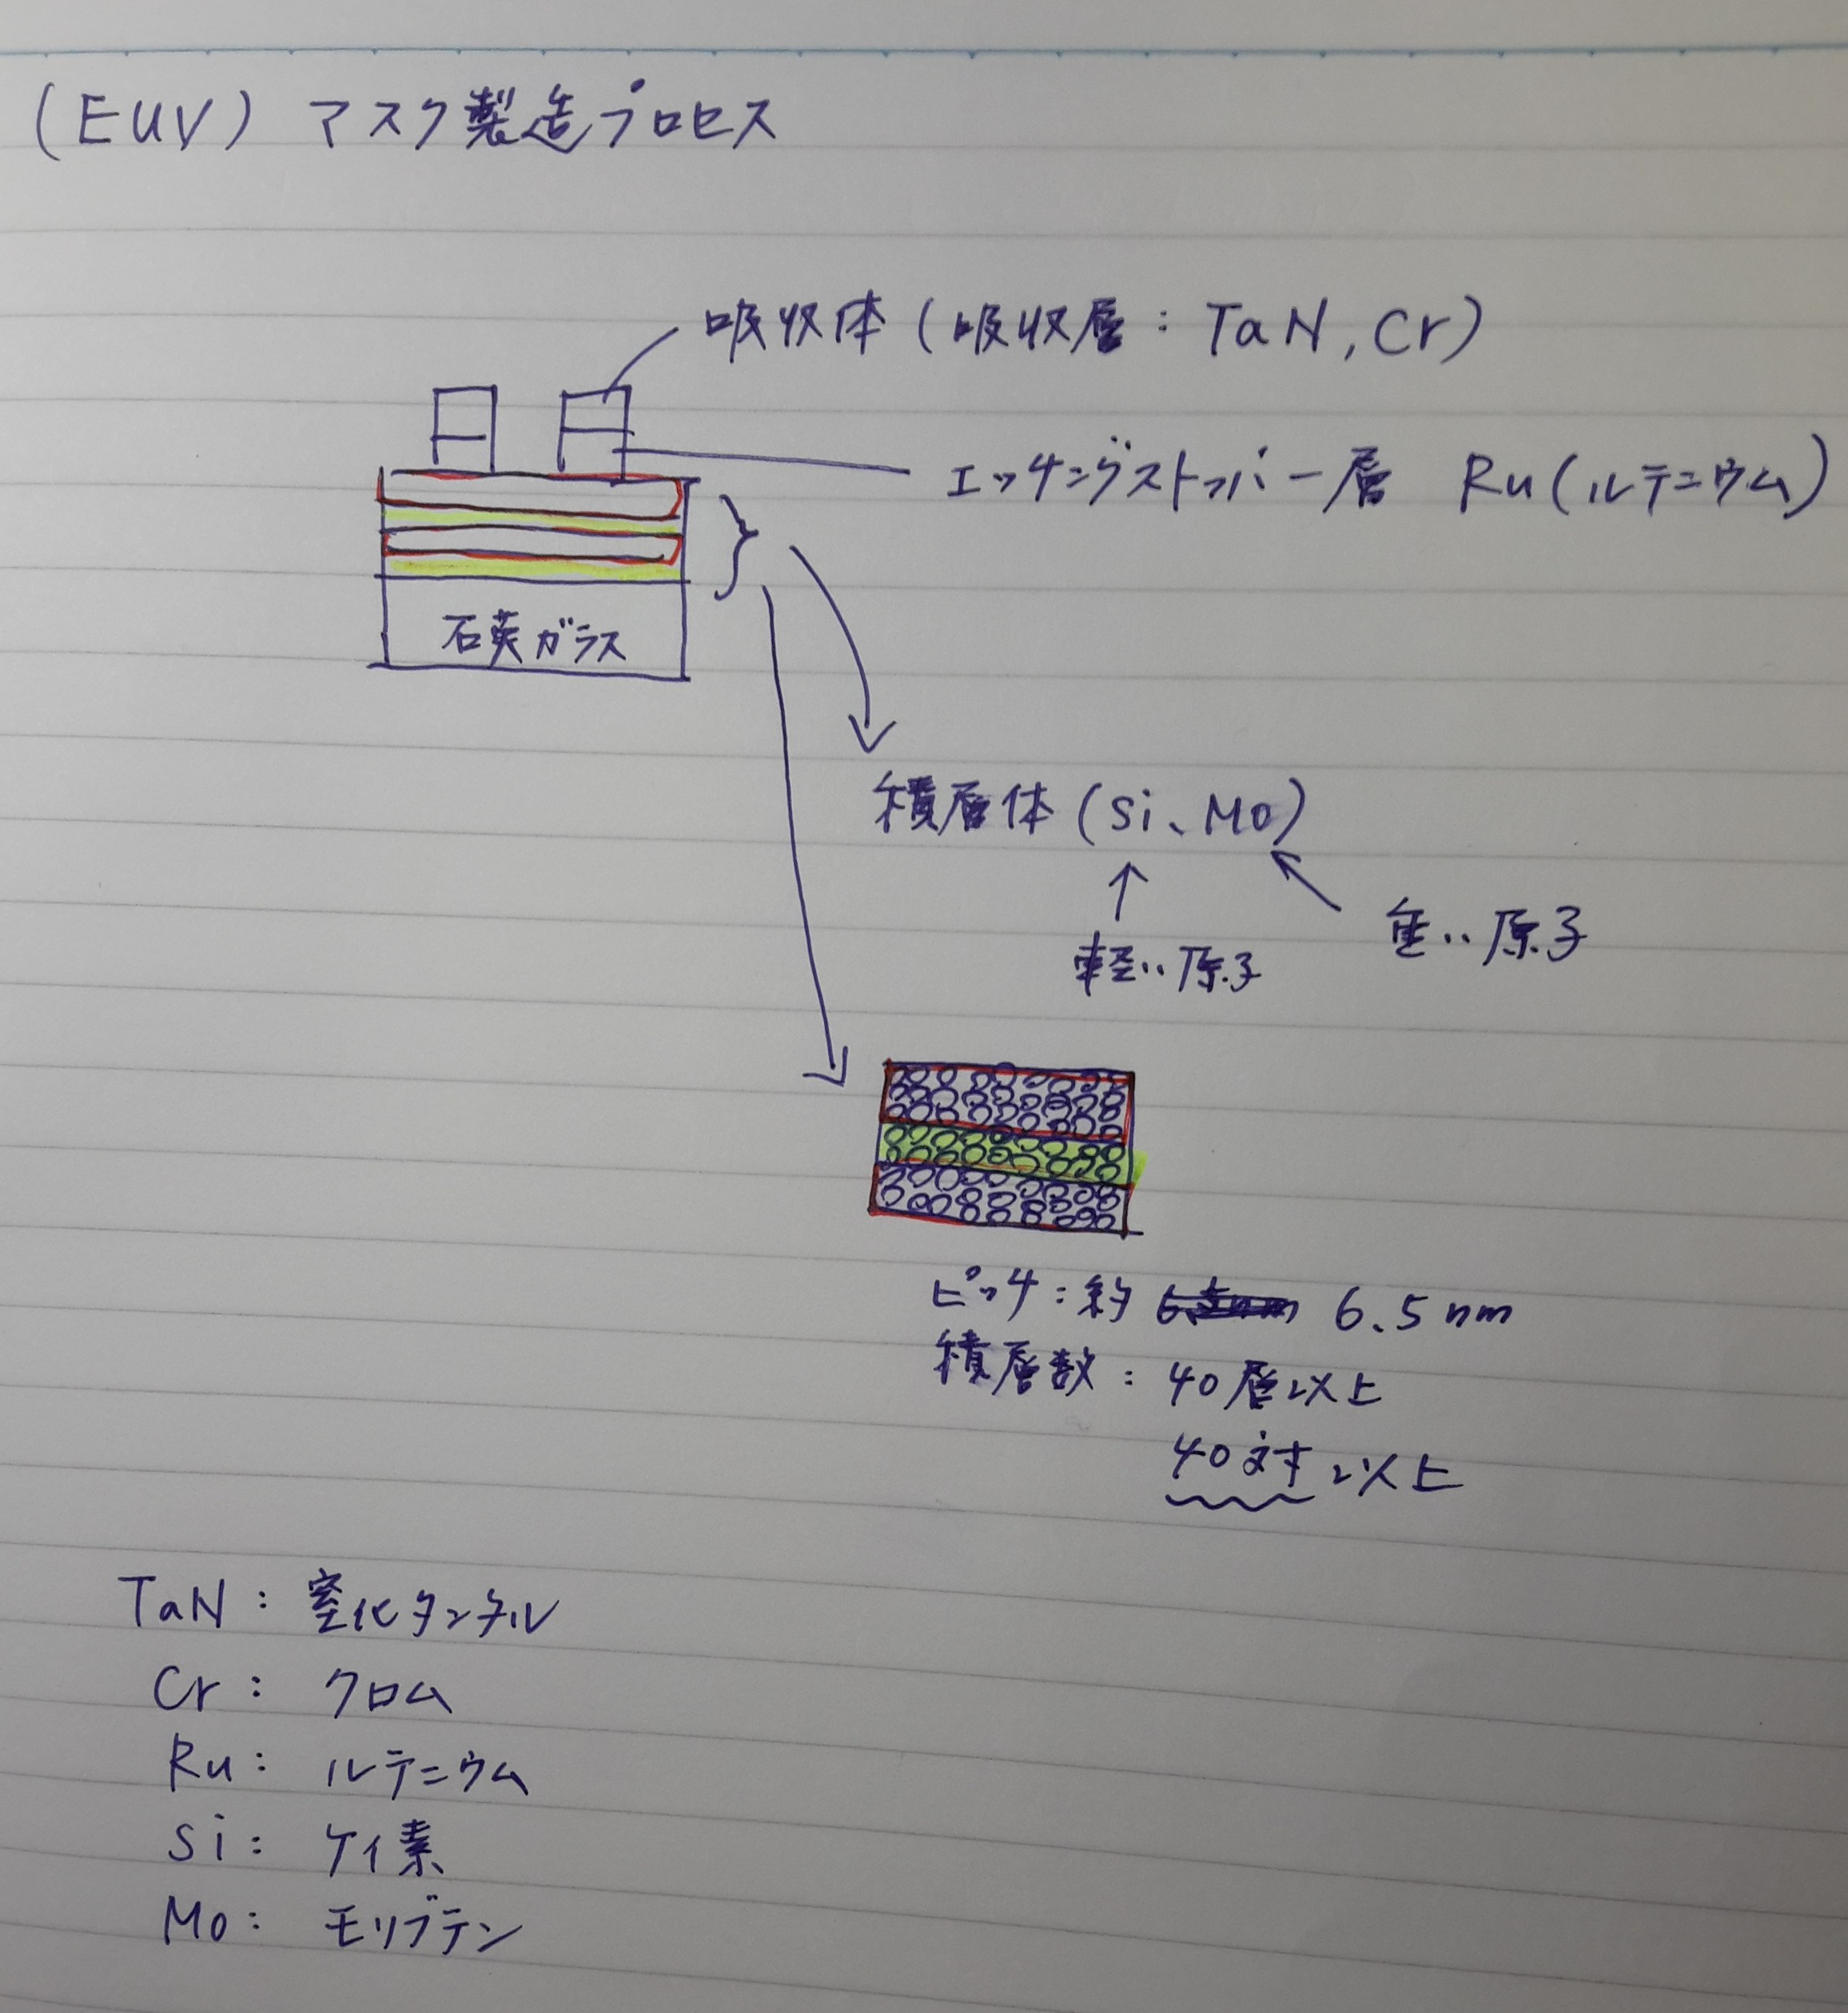 (EUV) マスク製造プロセス
吸収体(吸収層:TaN,Cr)
エッチングストッパー層 Ru(ルテニウム)
石英ガラス
積層体(Si、Mo)
重い原子
軽い原子
ピッチ:約 6.5nm
積層数:40層以上
40対以上
TaN:窒化タンタル
Cr:クロム
Ru:ルテニウム
Si:ケイ素
Mo:モリブデン